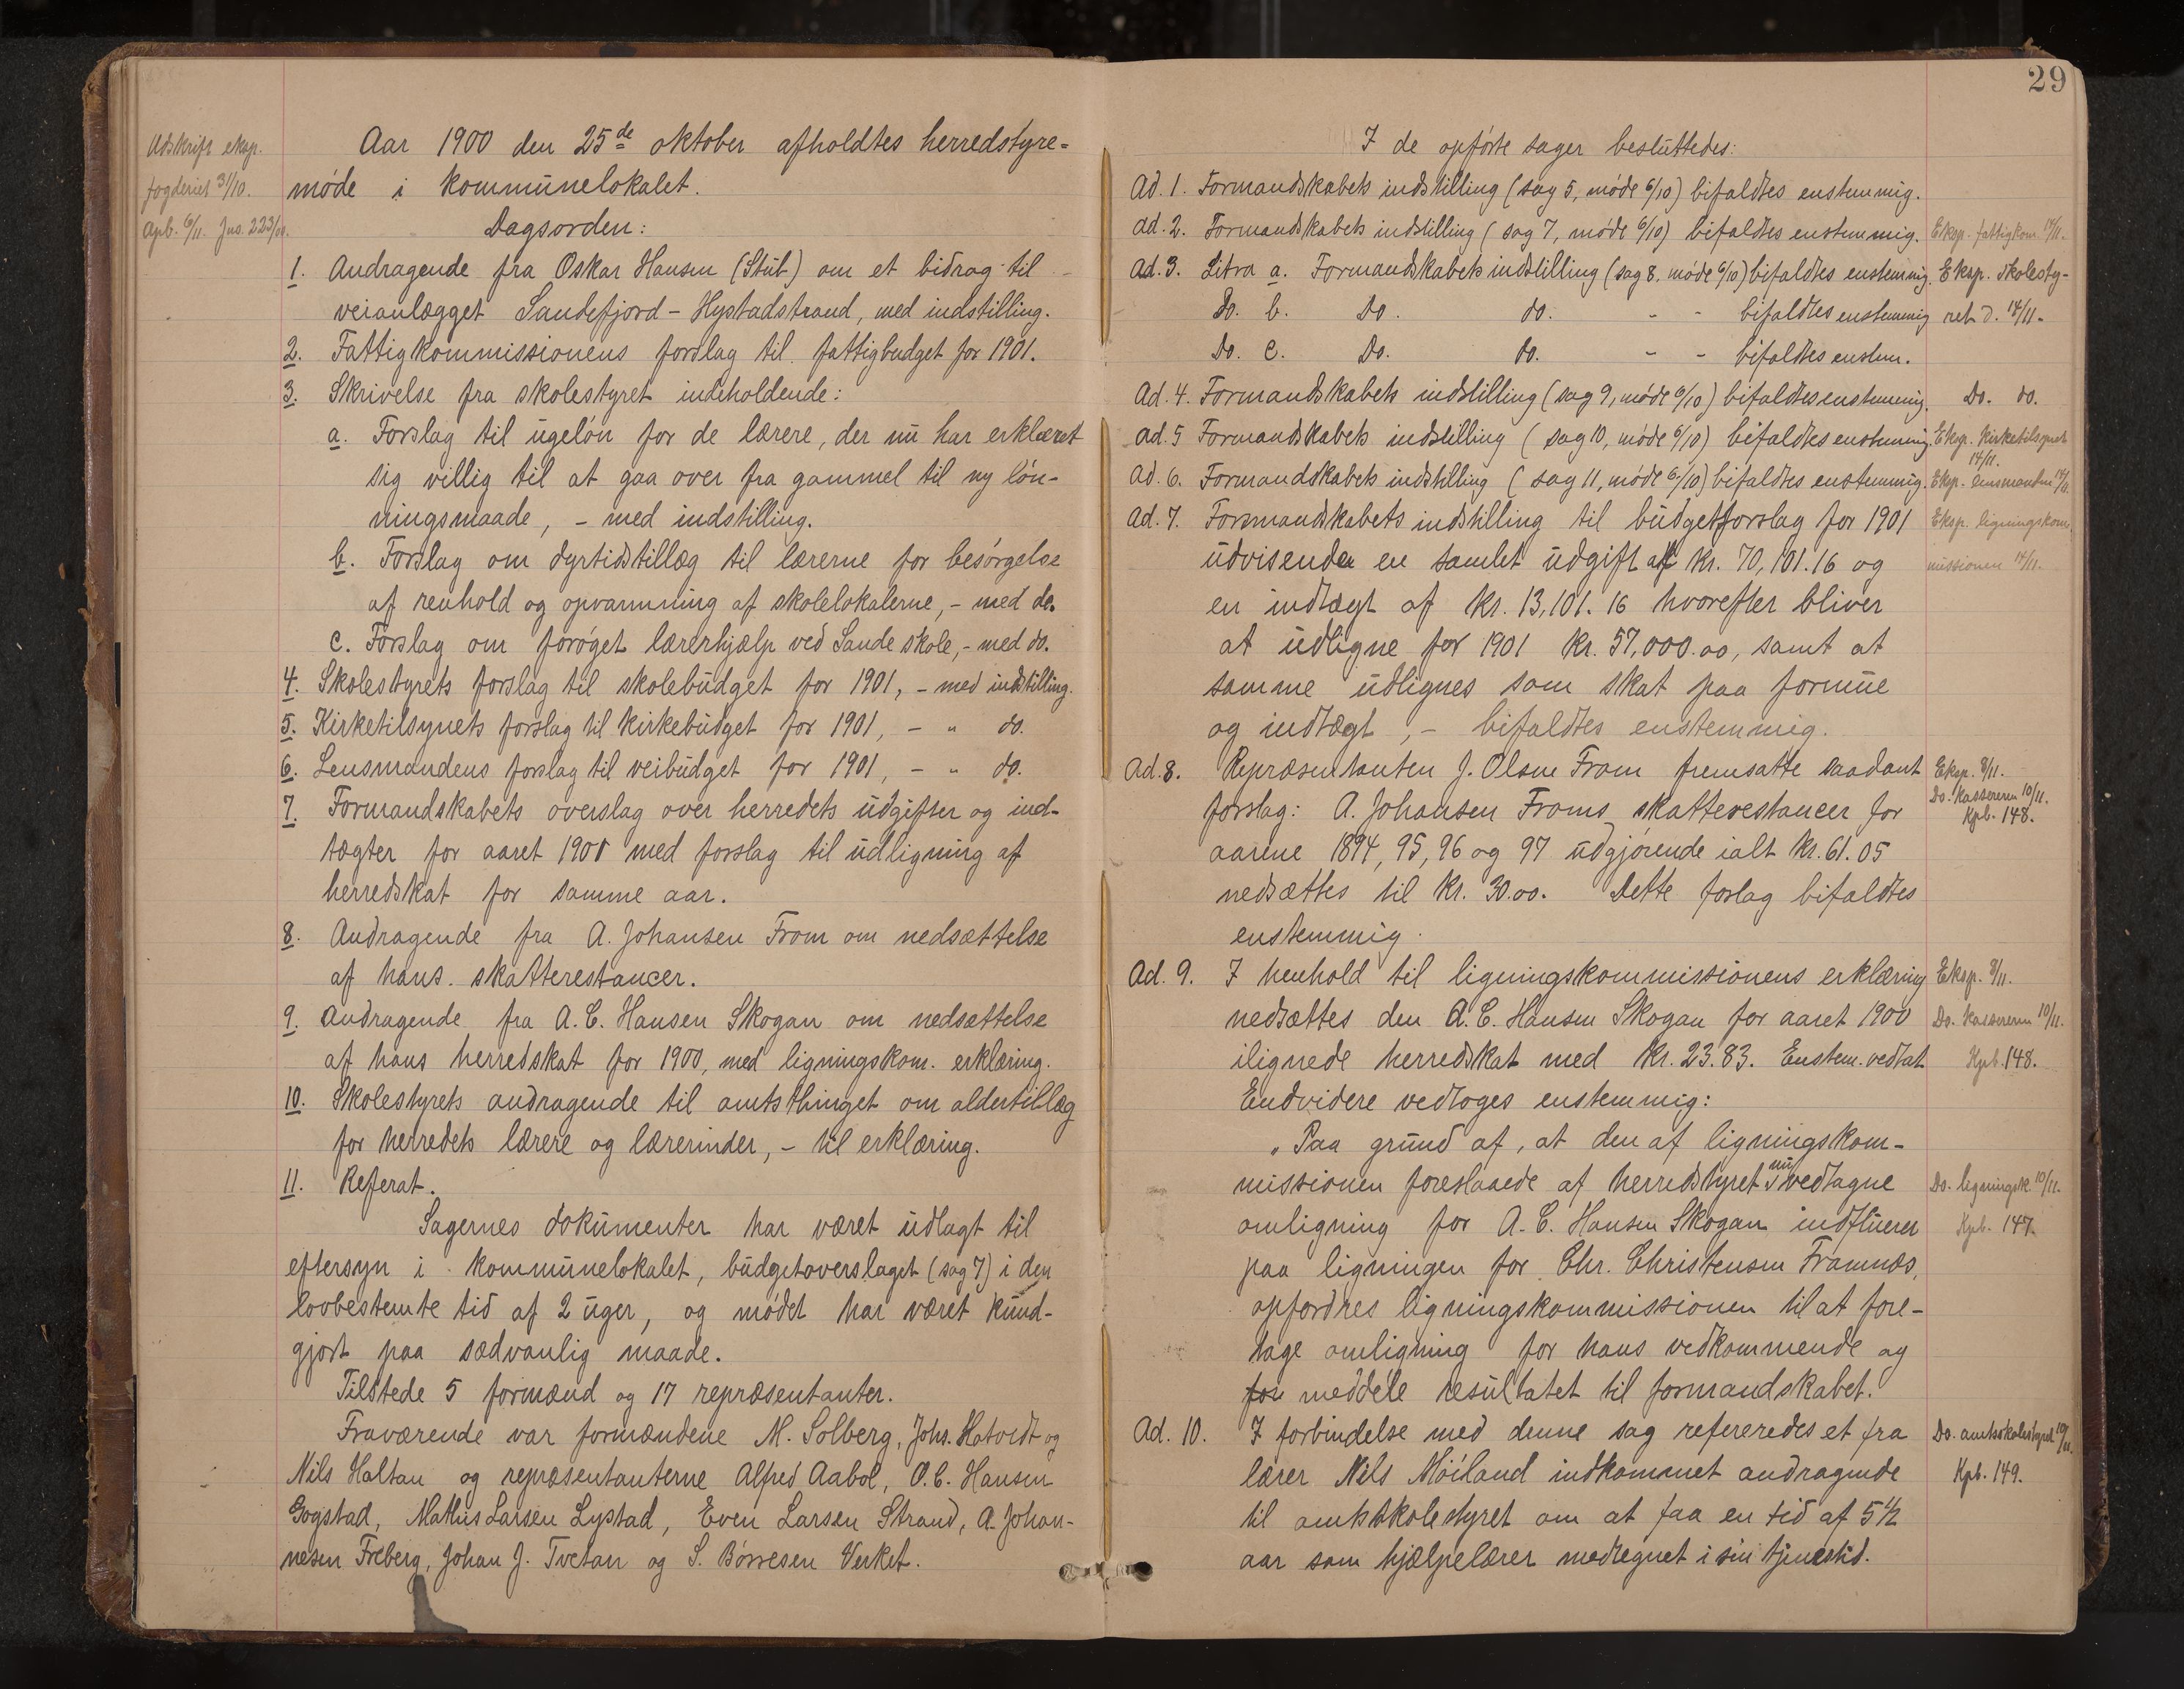 Udskrift eksp.
fogderiet 31/10.
apb. 6/11. Jns. 223/00.
Aar 1900 den 25de oktober afholdtes herredstyre-
møde i kommunelokalet.
Dagsorden:
1. Andragende fra Oskar Hansen (Stub) om et bidrag til
veianlægget Sandefjord - Hystadstrand, med indstilling.
2. Fattigkommissionens forslag til fattigbudget for 1901.
3. Skrivelse fra skolestyret indeholdende:
a. Forslag til ugeløn for de lærere, der nu har erklæret
sig villig til at gaa over fra gammel til ny løn-
ningsmaade, - med indstilling.
b. Forslag om dyrtidstillæg til lærerne for besørgelse
af renhold og opvarmning af skolelokalerne, - med do.
c. Forslag om forøget lærerhjælp ved Sande skole, - med do.
4. Skolestyrets forslag til skolebudget for 1901, - med indstilling.
5. Kirketilsynets forslag til kirkebudget for 1901, - " do.
6. Lensmandens forslag til veibudget for 1901, - " do.
7. Formandskabets overslag over herredets udgifter og ind-
tægter for aaret 1901 med forslag til udligning af
herredskat for samme aar.
8. Andragende fra A. Johansen Fram om nedsættelse
af hans skatterestancer.
9. Andragende fra A. C. Hansen Skogan om nedsættelse
af hans herredskat for 1900, med ligningskom. erklæring.
10. Skolestyrets andragende til amtsthinget om alderstillæg
for herredets lærere og lærerinder, - til erklæring.
11. Referat.
Sagernes dokumenter har været udlagt til
eftersyn i kommunelokalet, budgetoverslaget (sag 7) i den
lovbestemte tid af 2 uger, og mødet har været kund-
gjort paa sædvanlig maade.
Tilstede 5 formænd og 17 repræsentanter.
Fraværende var formændene M. Solberg, Johs. Hotvedt og
Nils Haltan og repræsentanterne Alfred Aabol, O. C. Hansen
Gogstad, Mathis Larsen Lystad, Even Larsen Strand, A. Johan-
nesen Freberg, Johan J. Tvetan og S. Børresen Virket.
29
I de opførte sager besluttedes:
Ad. 1. Formandskabets indstilling (sag 5, møde 6/10) bifaldtes enstemmig.
Ad. 2. Formandskabets indstilling (sag 7, møde 6/10) bifaldtes enstemmig. Eksp. fattigkom. 14/11.
Ad. 3. Litra a. Formandskabets indstilling (sag 8, møde 6/10) bifaldtes enstemmig. Eksp. skolesty-
Do. b. Do. do. - - bifaldtes enstemmig ret d. 14/11.
Do. c. Do. do. - - bifaldtes enstem.
Ad. 4. Formandskabets indstilling (sag 9, møde 6/10) bifaldtes enstemmig. Do. do.
Ad. 5 Formandskabets indstilling (sag 10, møde 6/10) bifaldtes enstemmig. Eksp. kirketilsynet
14/11.
Ad. 6. Formandskabets indstilling (sag 11, møde 6/10) bifaldtes enstemmig. Eksp. lensmanden 14/11.
Ad. 7. Formandskabets indstilling til budgetforslag for 1901 Eksp. ligningskom-
udvisende en samlet udgift af kr. 70,101.16 og missionen 14/11.
en indtægt af kr. 13,101.16 hvorefter bliver
at udligne for 1901 kr. 57,000.00, samt at
samme udlignes som skat paa formue
og indtægt, - bifaldtes enstemmig.
Ad. 8. Repræsentanten J. Olsen Fram fremsatte saadant Eksp. 8/11.
Do. kassereren 10/11.
forslag: A. Johansen Frams skatterestancer for Kpb. 148.
aarene 1894, 95, 96 og 97 udgjørende ialt kr. 61.05
nedsættes til kr. 30.00. Dette forslag bifaldtes
enstemmig.
Ad. 9. I henhold til ligningskommissionens erklæring Eksp. 8/11.
nedsættes den A. C. Hansen Skogan for aaret 1900 Do. kassereren 10/11.
ilignede herredskat med kr. 23.83. Enstem. vedtat Kpb. 148.
Endvidere vedtoges enstemmig:
"Paa grund af, at den af ligningskom-
missionen foreslaaede af herredstyret nu vedtagne Do. ligningsk. 10/11.
omligning for A. C. Hansen Skogan influerer Kpb. 147.
paa ligningen for Chr. Christensen Framnæs,
opfordres ligningskommissionen til at fore-
tage omligning for hans vedkommende og
for meddele resultatet til formandskabet.
Ad. 10. I forbindelse med denne sag refereredes et fra Do. amtsskolestyret 10/11.
lærer Nils Möiland indkommet andragende Kpb. 149.
til amtsskolestyret om at faa en tid af 5 1/2
aar som hjælpelærer medregnet i sin tjenestid.